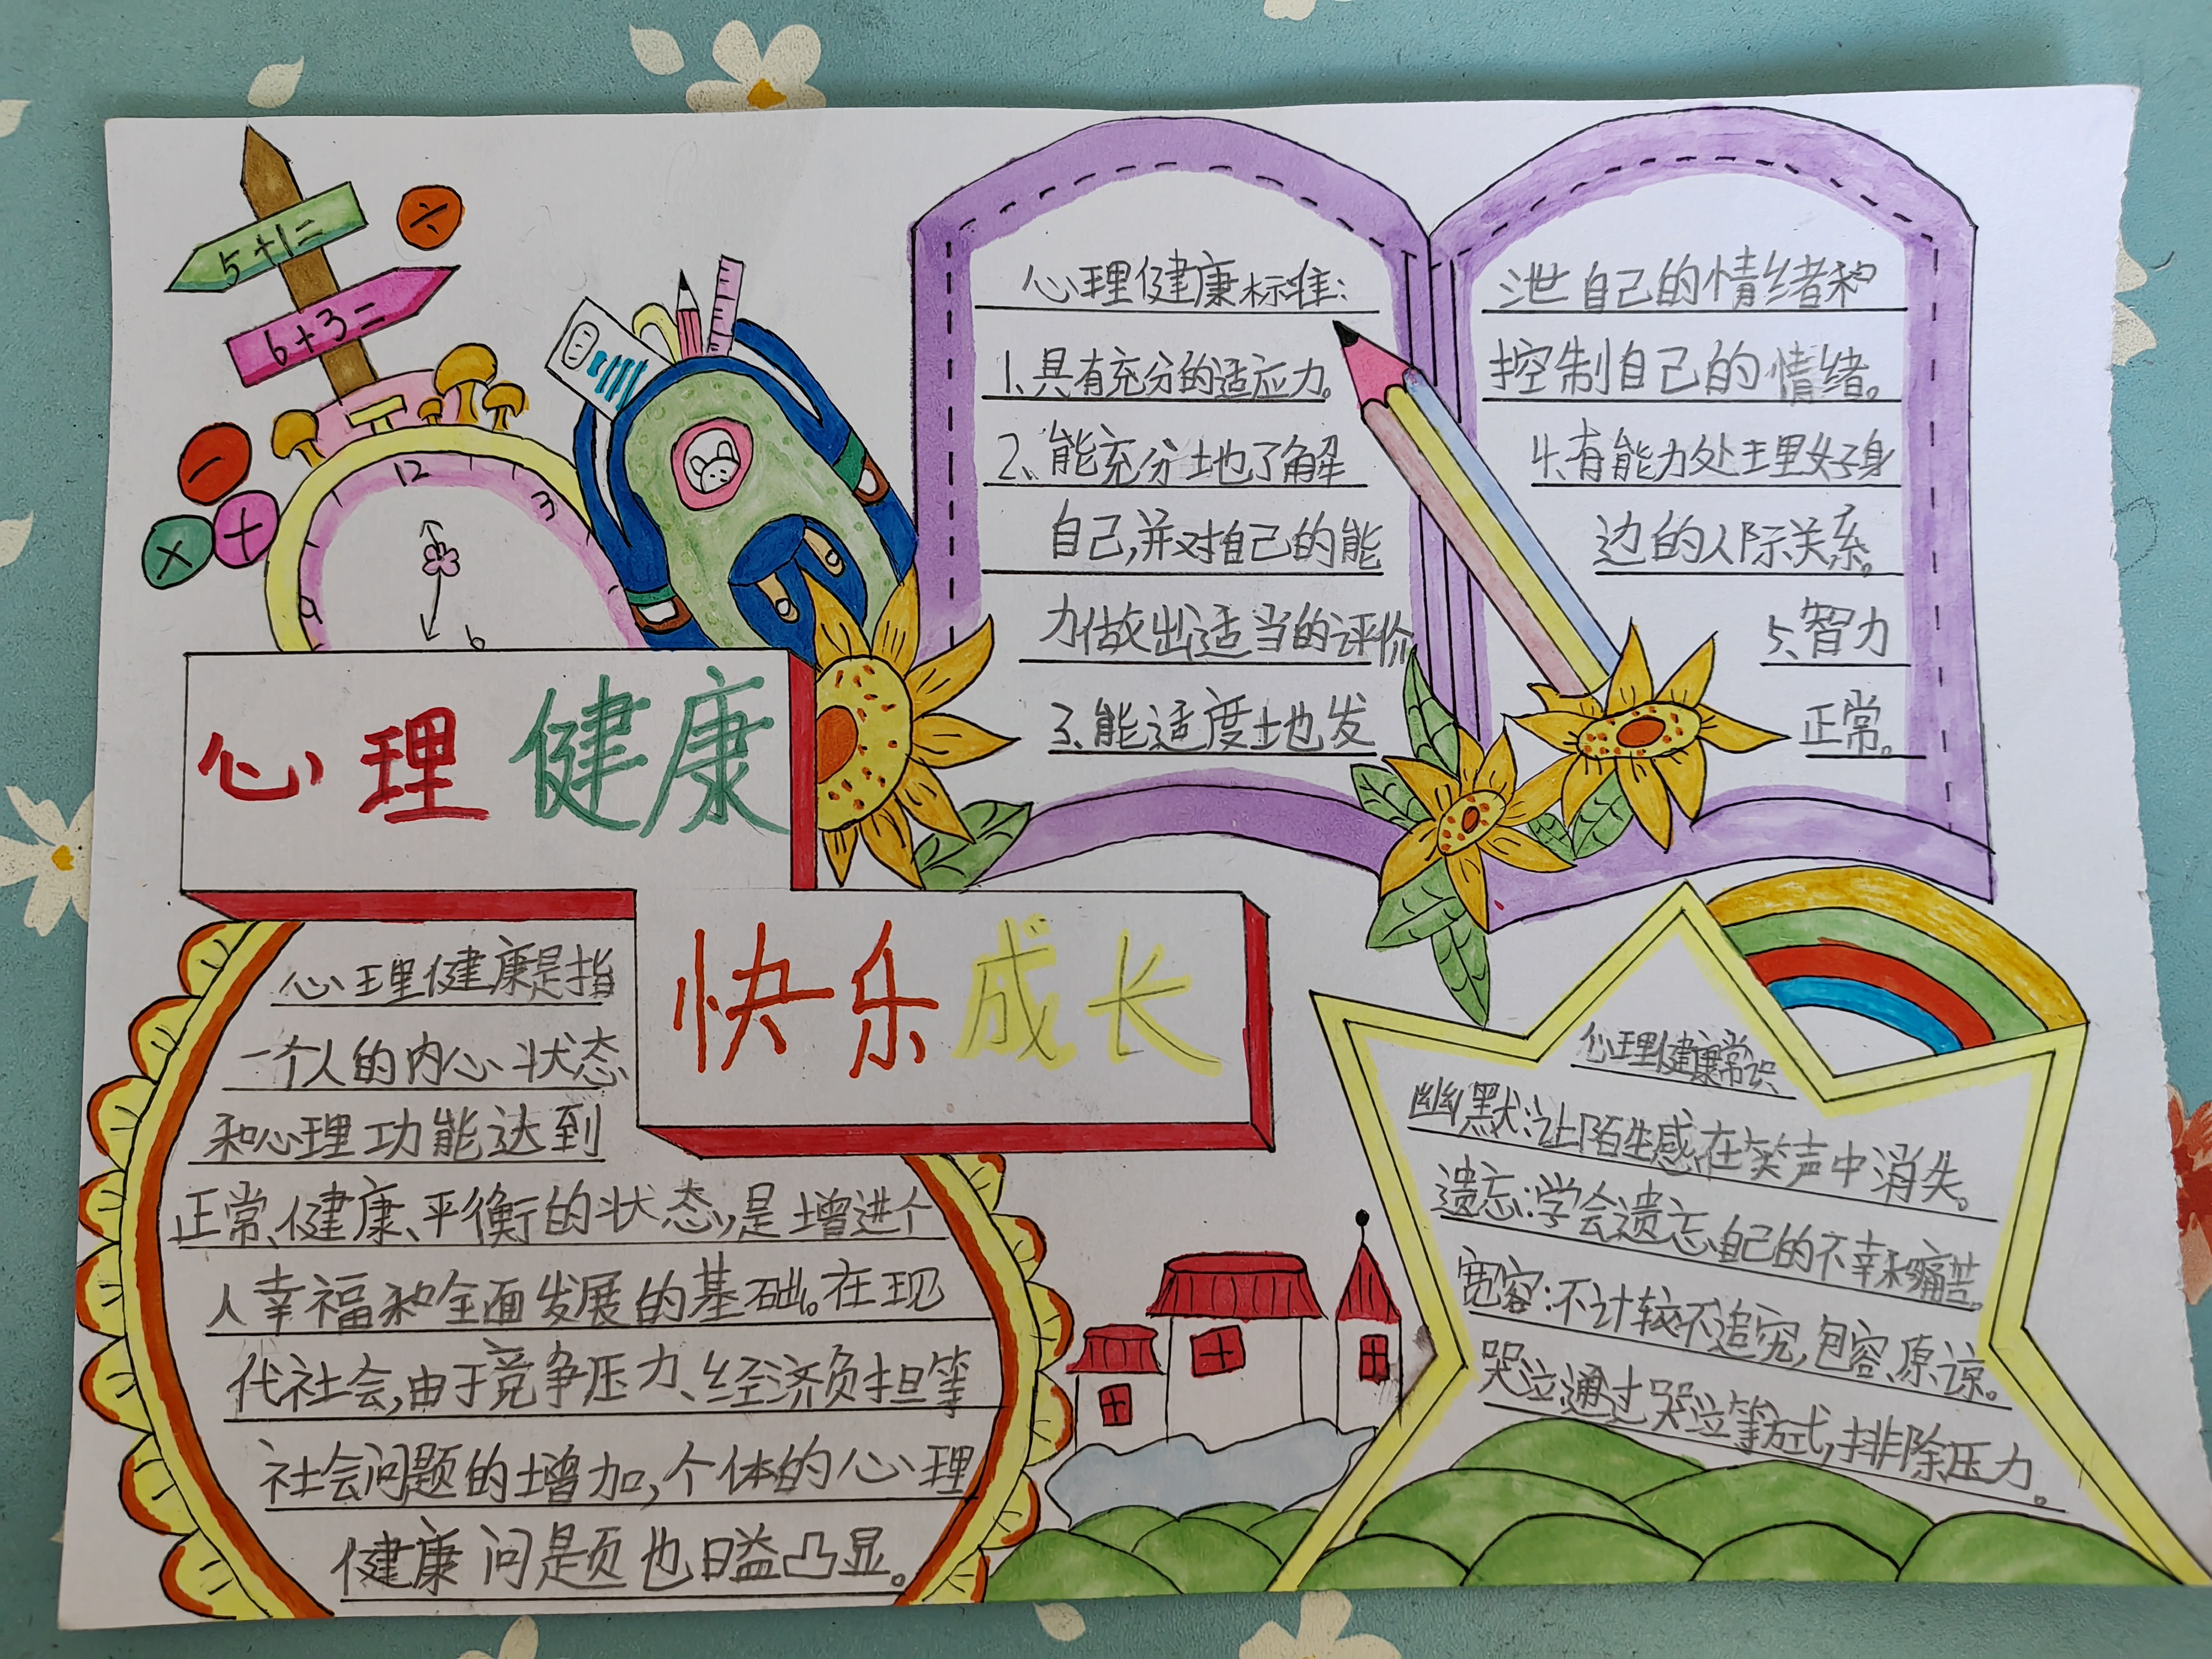 5+1=
÷
6+3=
-
+
×
12
3
9
6
心理健康
快乐成长
心理健康标准:
1、具有充分的适应力。
2、能充分地了解
自己,并对自己的能
力做出适当的评价
3、能适度地发
泄自己的情绪和
控制自己的情绪。
4、有能力处理好身
边的人际关系。
5、智力
正常。
心理健康是指
一个人的内心状态
和心理功能达到
正常、健康、平衡的状态,是增进个
人幸福和全面发展的基础。在现
代社会,由于竞争压力、经济负担等
社会问题的增加,个体的心理
健康问题也日益凸显。
心理健康常识
幽默:让陌生感在笑声中消失。
遗忘:学会遗忘自己的不幸和痛苦。
宽容:不计较不追究,包容、原谅。
哭泣:通过哭泣等方式,排除压力。